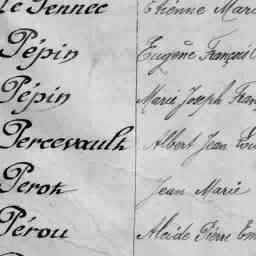 Le Jennec Etienne Marie
Pépin Eugène François
Pépin Marie Joseph Fran
Percevault Albert Jean Lou
Perok Jean Marie
Pérou Alcide Pierre Em